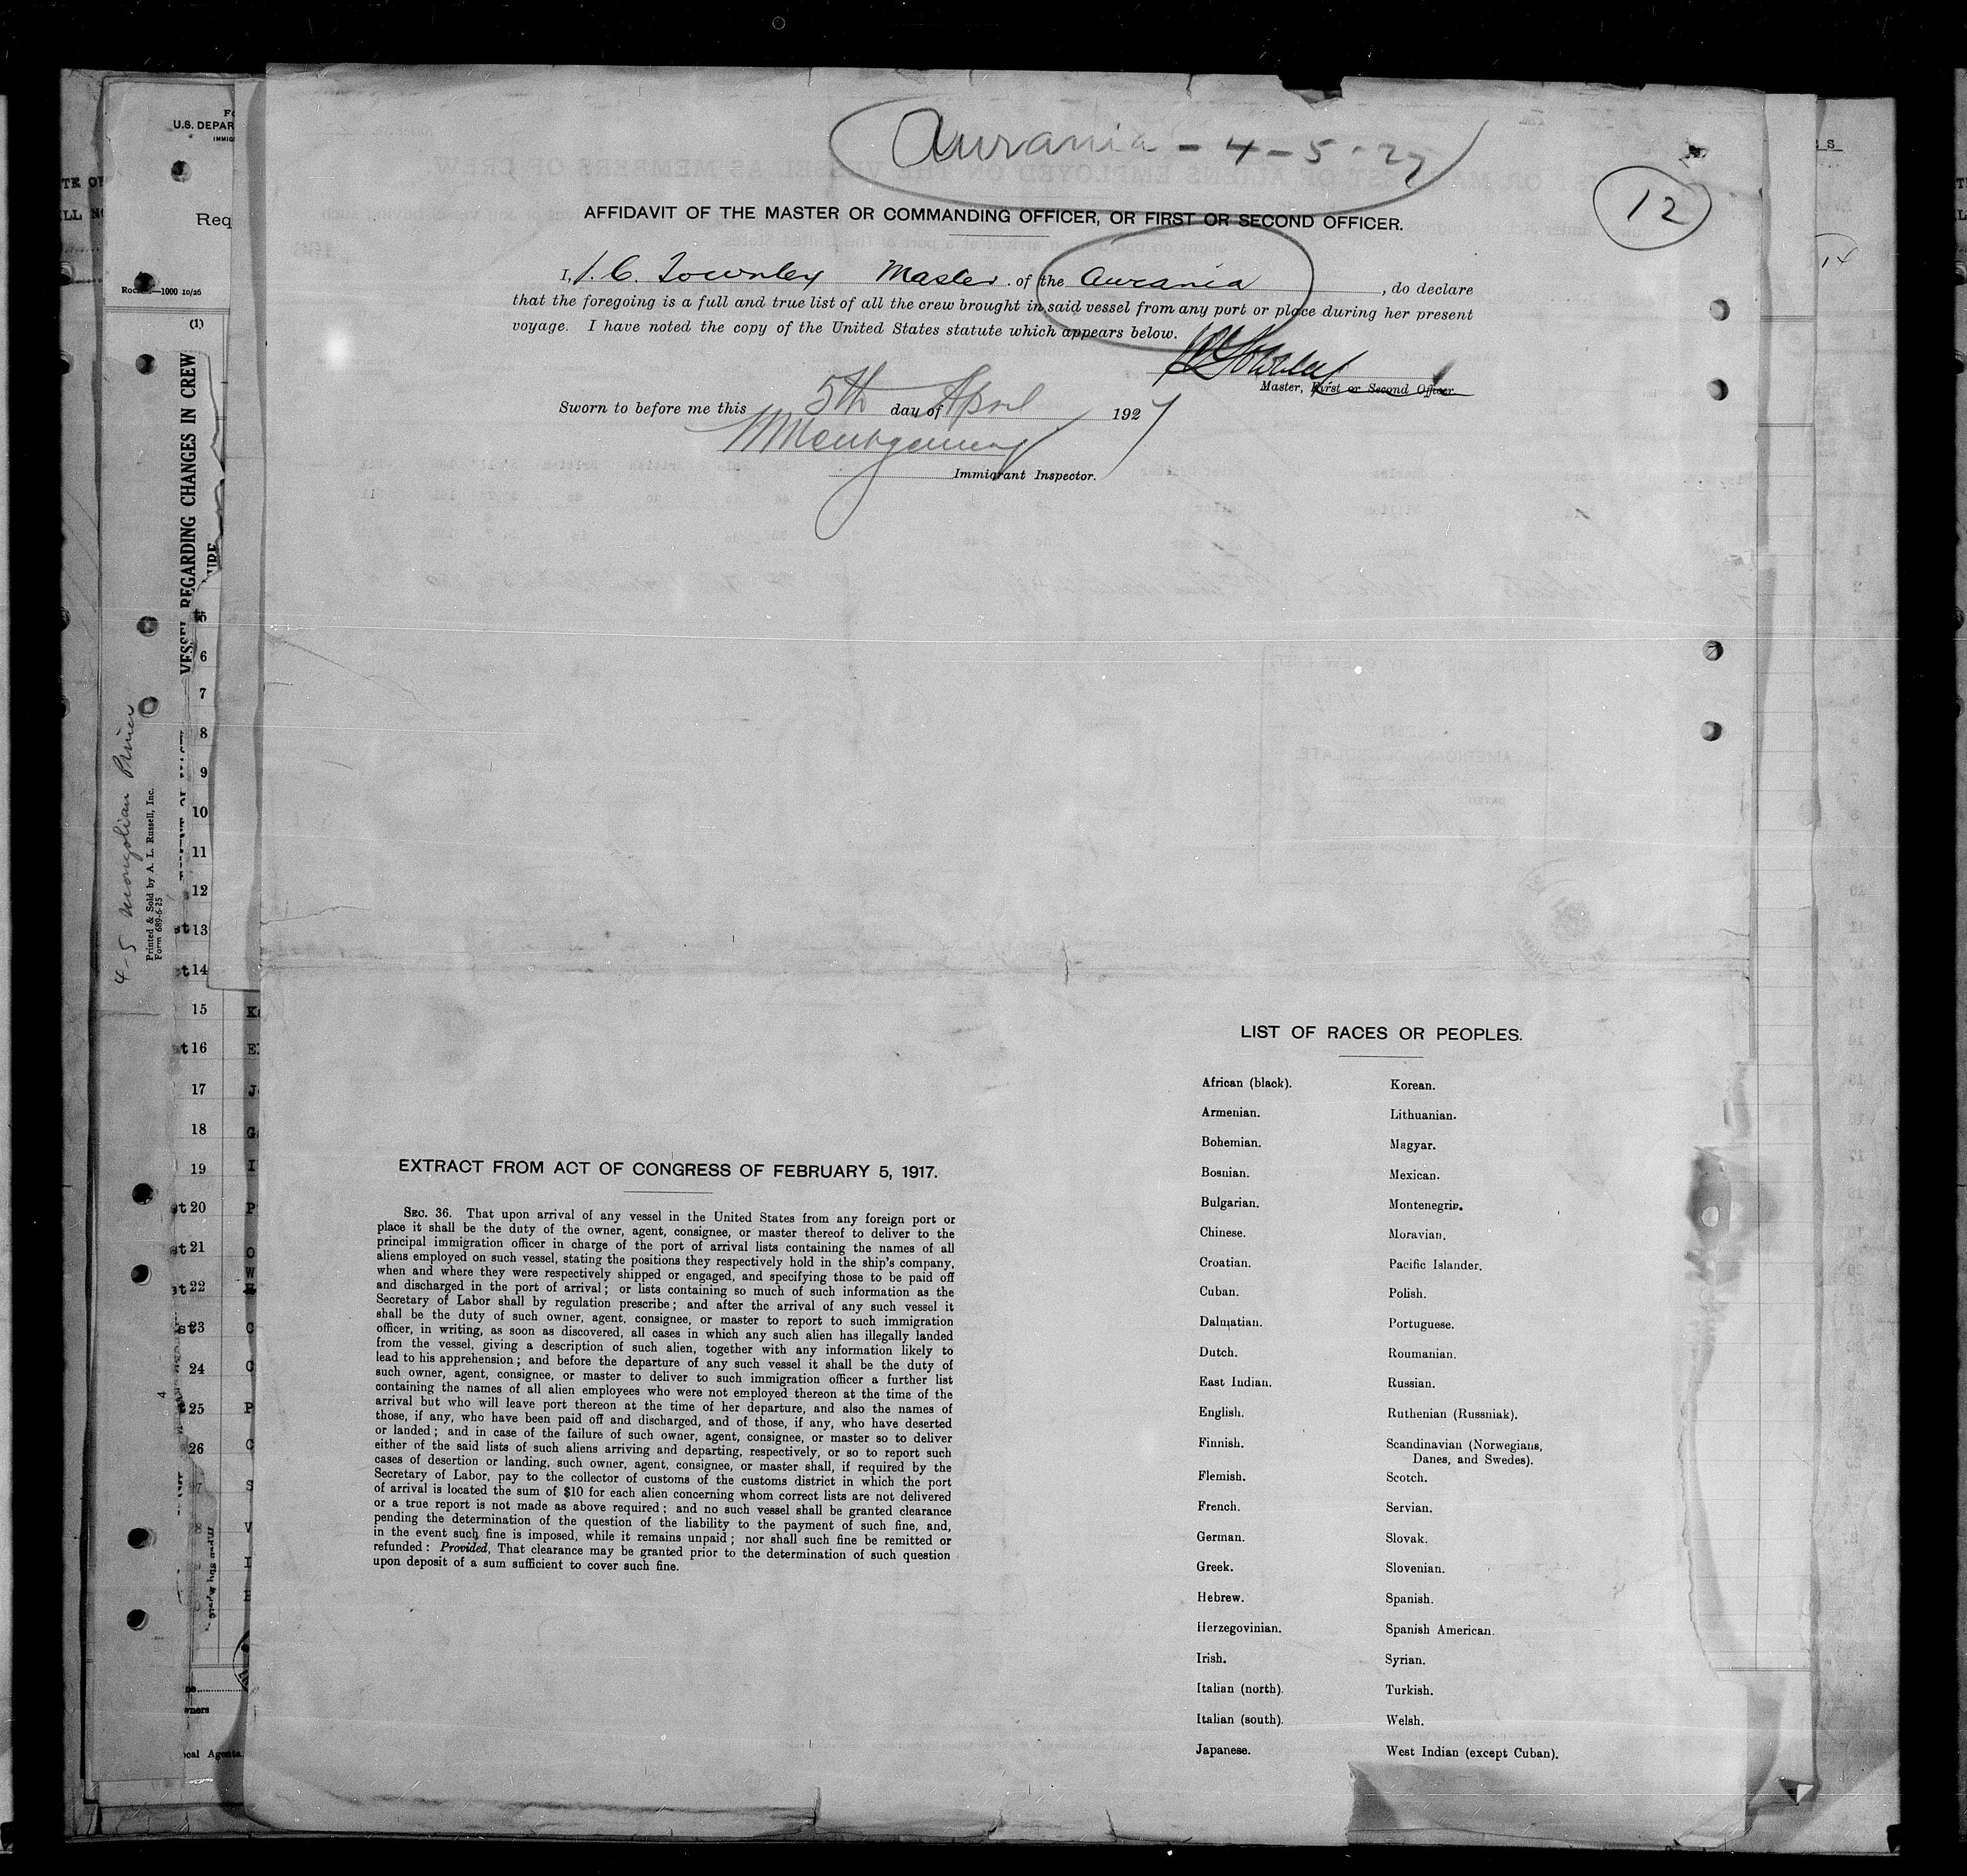 Aurania - 4 - 5 - 27
12
AFFIDAVIT OF THE MASTER OR COMMANDING OFFICER, OR FIRST OR SECOND OFFICER.
I, Townley Master of the Aurania, do declare
that the foregoing is a full and true list of all the crew brought in said vessel from any port or place during her present
voyage. I have noted the copy of the United States statute which appears below.
Master, First or Second Officer
Sworn to before me this 5th day of April 1927
Montgomery
Immigrant Inspector.
LIST OF RACES OR PEOPLES.
African (black). Korean.
Armenian. Lithuanian.
Bohemian. Magyar.
Bosnian. Mexican.
Bulgarian. Montenegrin.
Chinese. Moravian.
Croatian. Pacific Islander.
Cuban. Polish.
Dalmatian. Portuguese.
Dutch. Roumanian.
East Indian. Russian.
English. Ruthenian (Russniak).
Finnish. Scandinavian (Norwegians,
Danes, and Swedes).
Flemish. Scotch.
French. Servian.
German. Slovak.
Greek. Slovenian.
Hebrew. Spanish.
Herzegovinian. Spanish American.
Irish. Syrian.
Italian (north). Turkish.
Italian (south). Welsh.
Japanese. West Indian (except Cuban).
EXTRACT FROM ACT OF CONGRESS OF FEBRUARY 5, 1917.
SEC. 36. That upon arrival of any vessel in the United States from any foreign port or
place it shall be the duty of the owner, agent, consignee, or master thereof to deliver to the
principal immigration officer in charge of the port of arrival lists containing the names of all
aliens employed on such vessel, stating the positions they respectively hold in the ship's company,
when and where they were respectively shipped or engaged, and specifying those to be paid off
and discharged in the port of arrival; or lists containing so much of such information as the
Secretary of Labor shall by regulation prescribe; and after the arrival of any such vessel it
shall be the duty of such owner, agent, consignee, or master to report to such immigration
officer, in writing, as soon as discovered, all cases in which any such alien has illegally landed
from the vessel, giving a description of such alien, together with any information likely to
lead to his apprehension; and before the departure of any such vessel it shall be the duty of
such owner, agent, consignee, or master to deliver to such immigration officer a further list
containing the names of all alien employees who were not employed thereon at the time of the
arrival but who will leave port thereon at the time of her departure, and also the names of
those, if any, who have been paid off and discharged, and of those, if any, who have deserted
or landed; and in case of the failure of such owner, agent, consignee, or master so to deliver
either of the said lists of such aliens arriving and departing, respectively, or so to report such
cases of desertion or landing, such owner, agent, consignee, or master shall, if required by the
Secretary of Labor, pay to the collector of customs of the customs district in which the port
of arrival is located the sum of $10 for each alien concerning whom correct lists are not delivered
or a true report is not made as above required; and no such vessel shall be granted clearance
pending the determination of the question of the liability to the payment of such fine, and,
in the event such fine is imposed, while it remains unpaid; nor shall such fine be remitted or
refunded: Provided, That clearance may be granted prior to the determination of such question
upon deposit of a sum sufficient to cover such fine.
U.S. DEPAR
Req
—1000 10/26
(1)
VESSEL REGARDING CHANGES IN CREW
4-5 Mongolian Prince
Printed & Sold by A. L. Russell, Inc.
Form 689-6-25
6
7
8
9
10
11
12
13
14
15
16
17
18
19
20
21
22
23
24
25
26